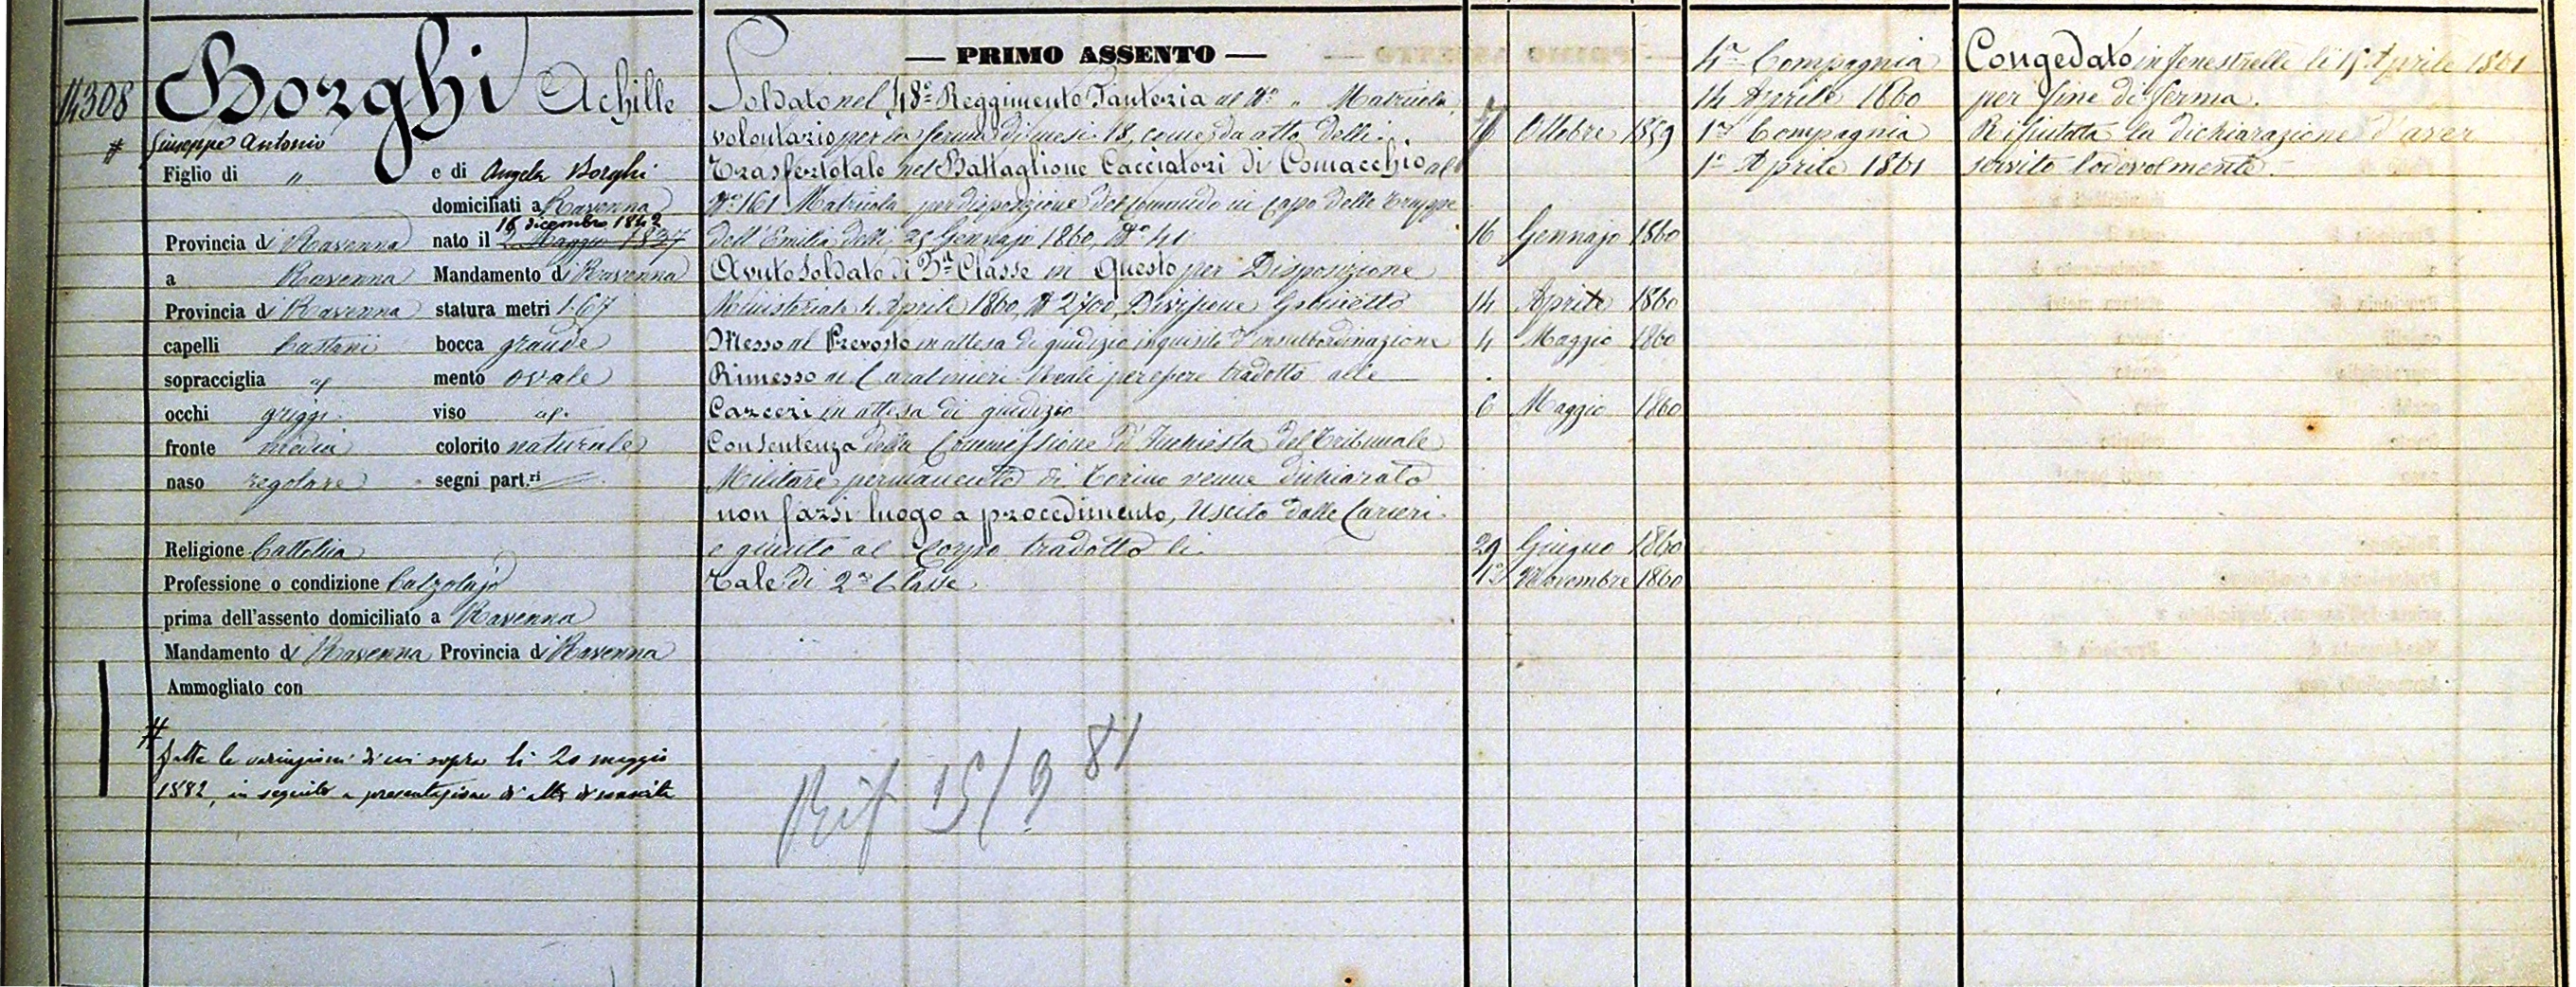 14308
Borghi Achille
# Giuseppe Antonio
Figlio di " e di Angela Borghi
domiciliati a Ravenna
16 dicembre 1842
Provincia di Ravenna nato il 2 Maggio 1837
a Ravenna Mandamento di Ravenna
Provincia di Ravenna statura metri 1.67
capelli Castani bocca grande
sopracciglia id mento ovale
occhi griggi viso id.
fronte media colorito naturale
naso regolare segni part.ri
Religione Cattolica
Professione o condizione Calzolajo
prima dell'assento domiciliato a Ravenna
Mandamento di Ravenna Provincia di Ravenna
Ammogliato con
# fatte le variazioni di cui sopra li 20 maggio
1882, in seguito a presentazione di atto di nascita
— PRIMO ASSENTO —
Soldato nel 48º Reggimento Fanteria al Nº " Matricola
volontario per la ferma di mesi 18, come da atto delli. 16 Ottobre 1859
Trasfertotale nel Battaglione Cacciatori di Comacchio al
Nº 161 Matricola per disposizione del Comando in capo delle Truppe
dell'Emilia delli 25 Gennajo 1860, Nº 41 16 Gennajo 1860
Avuto Soldato di 3ª Classe in Questo per Disposizione
Ministeriale 4 Aprile 1860, Nº 2700, Divisione Gabinetto 14 Aprile 1860
Messo al Prevosto in attesa di giudizio inquisito d'insubbordinazione 4 Maggio 1860
Rimesso ai Carabinieri Reali per essere tradotto alle
Carceri in attesa di giudizio 6 Maggio 1860
Con sentenza della Commissione d'Inchiesta del Tribunale
Militare permanente di Torino venne dichiarato
non farsi luogo a procedimento, Uscito dalle Carceri
e giunto al Corpo tradotto li. 29 Giugno 1860
Tale di 2ª Classe 1º Novembre 1860
Rif 15/9 81
4ª Compagnia
14 Aprile 1860
1ª Compagnia
1º Aprile 1861
Congedato in Fenestrelle li 15 Aprile 1861
per fine di ferma.
Rifiutata la dichiarazione d'aver
servito lodevolmente.